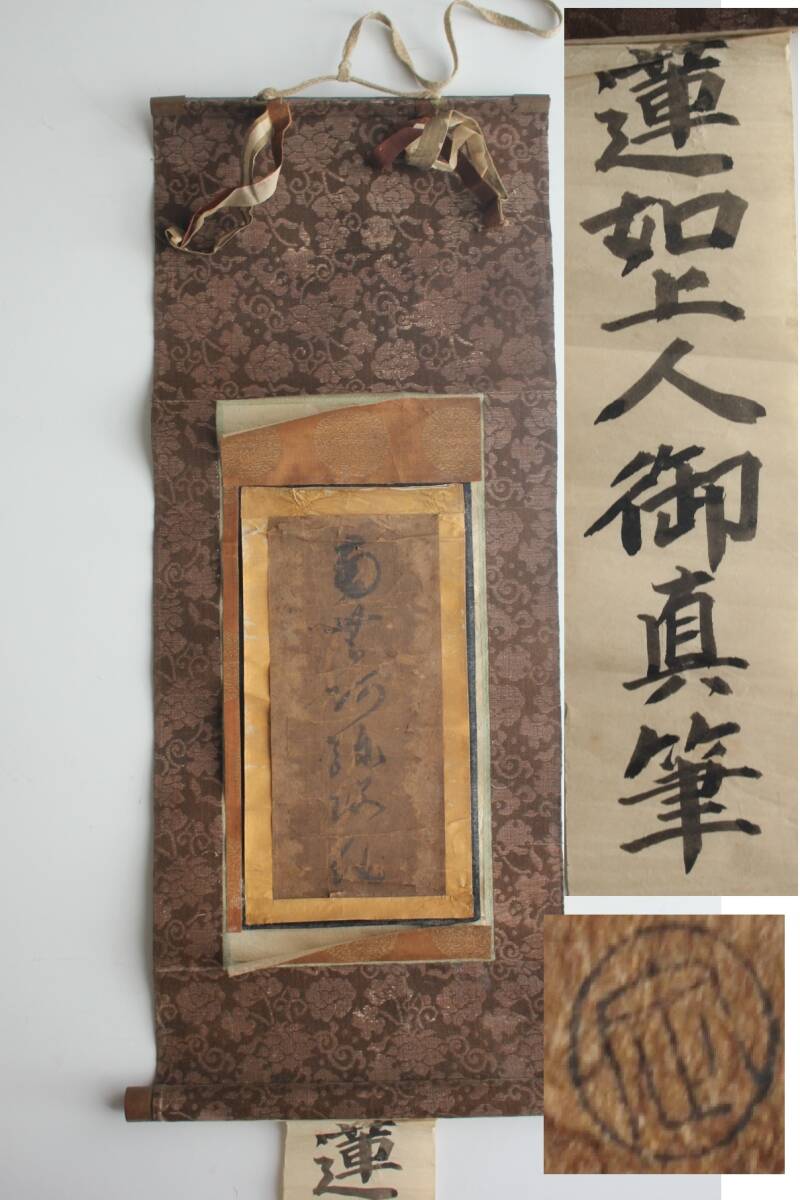 蓮如上人御真筆
南無阿弥陀仏
蓮